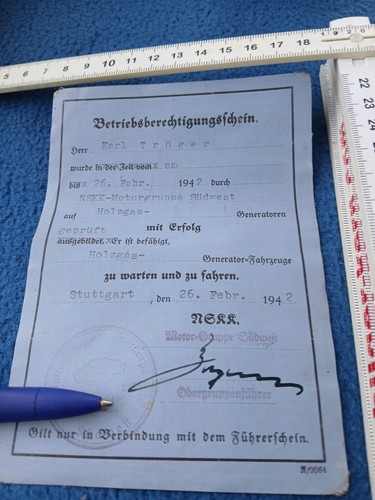 Betriebsberechtigungsschein.
Herr Karl Tröger
wurde in der Zeit vom am
bis 26. Febr. 1942 durch
NSKK-Motorgruppe Südwest
auf Holzgas- Generatoren
geprüft mit Erfolg
ausgebildet. Er ist befähigt,
Holzgas- Generator-Fahrzeuge
zu warten und zu fahren.
Stuttgart, den 26. Febr. 1942
NSKK.
Motor-Gruppe Südwest
Obergruppenführer
Gilt nur in Verbindung mit dem Führerschein.
5 6 7 8 9 10 11 12 13 14 15 16 17 18 19
22
23
24